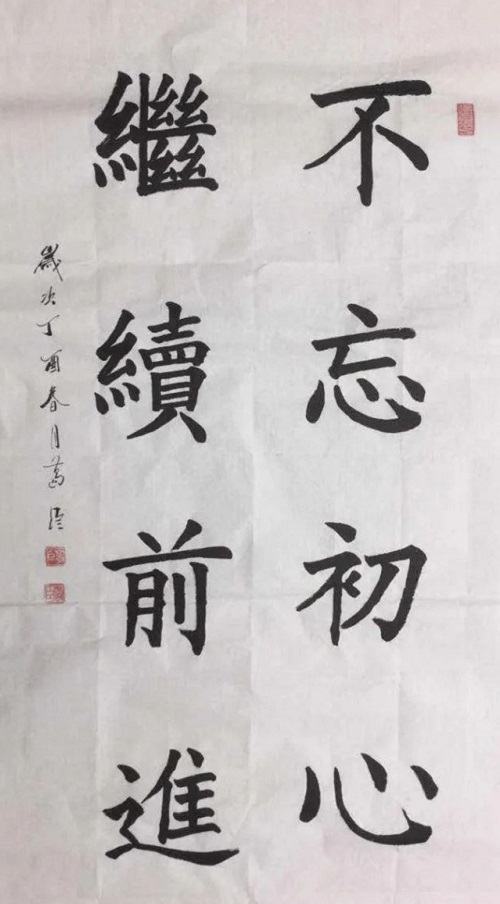 不忘初心
繼續前進
歲次丁酉春月葛